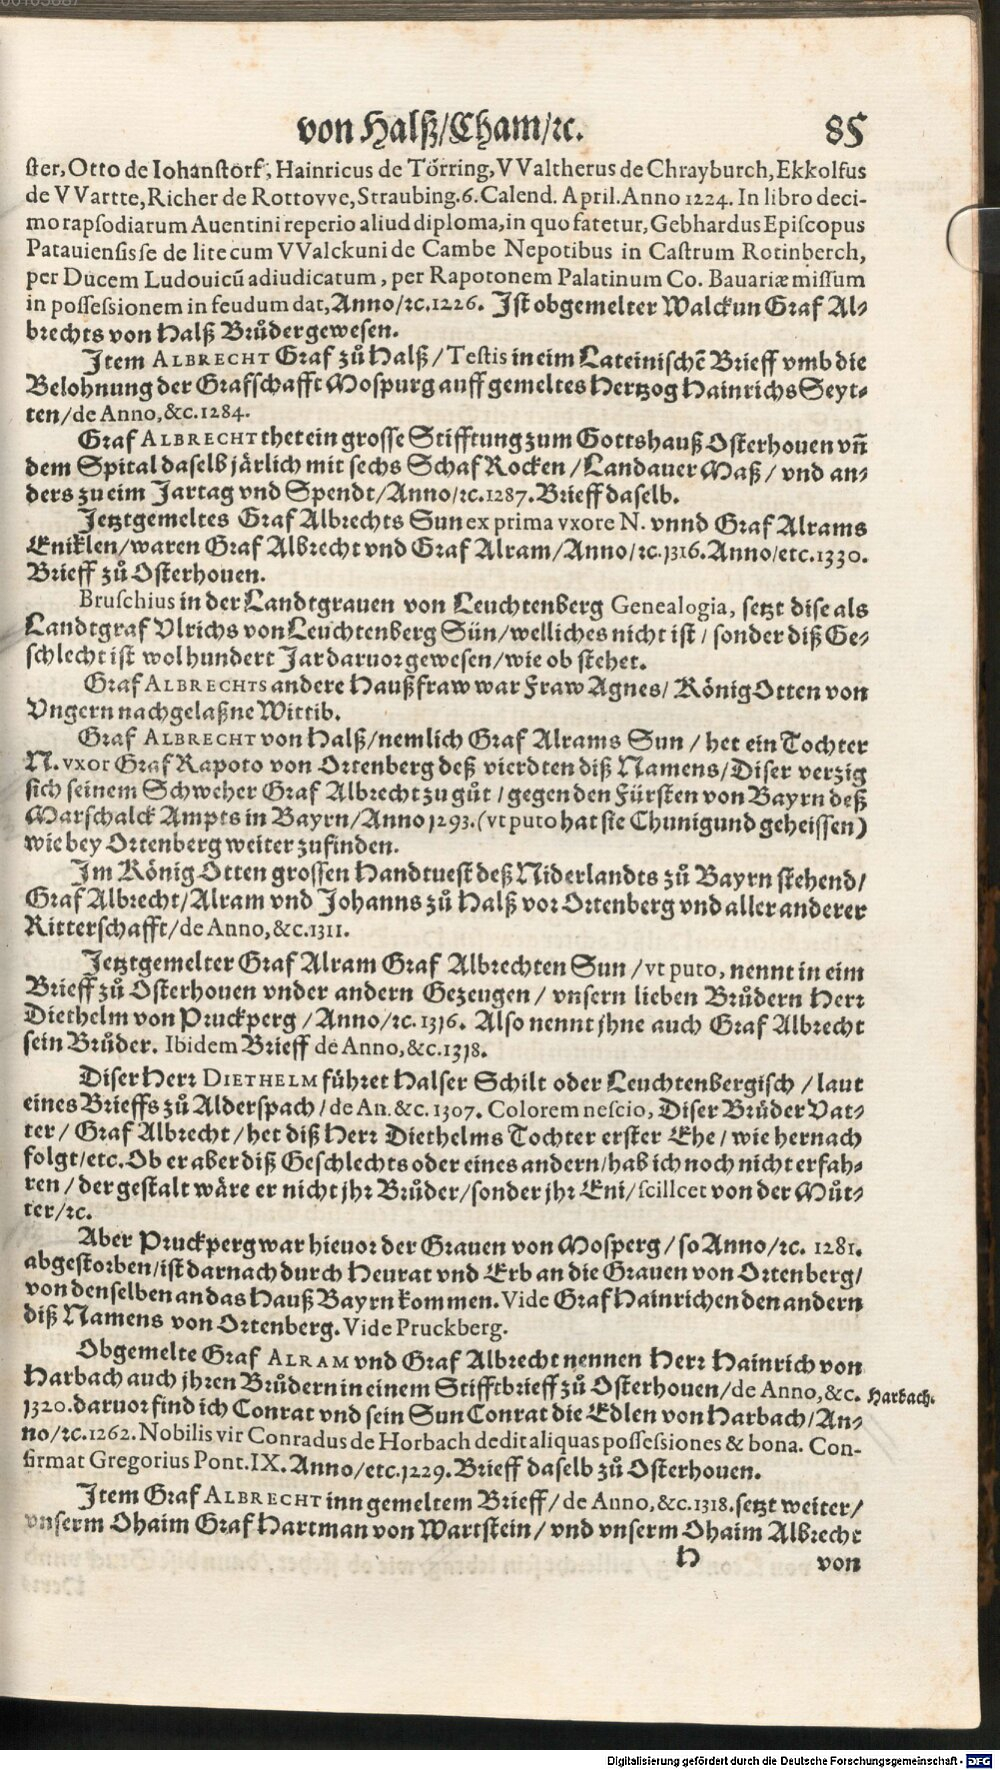 von Halß/Cham/ꝛc. 85
ster, Otto de Iohanstorf, Hainricus de Törring, VValtherus de Chrayburch, Ekkolfus
de VVartte, Richer de Rottovve, Straubing. 6. Calend. April. Anno 1224. In libro deci-
mo rapsodiarum Auentini reperio aliud diploma, in quo fatetur, Gebhardus Episcopus
Patauiensis se de lite cum VValckuni de Cambe Nepotibus in Castrum Rotinberch,
per Ducem Ludouicū adiudicatum, per Rapotonem Palatinum Co. Bauariæ missum
in possessionem in feudum dat, Anno/ꝛc. 1226. Ist obgemelter Walckun Graf Al-
brechts von Halß Brůder gewesen.
Item ALBRECHT Graf zů Halß/Testis in eim Lateinischē Brieff vmb die
Belohnung der Grafschafft Mospurg auff gemeltes Hertzog Hainrichs Seyt-
ten/de Anno, &c. 1284.
Graf ALBRECHT thet ein grosse Stifftung zum Gottshauß Osterhouen vñ
dem Spital daselb järlich mit sechs Schaf Rocken/Landauer Maß/vnd an-
ders zu eim Jartag vnd Spendt/Anno/ꝛc. 1287. Brieff daselb.
Jetztgemeltes Graf Albrechts Sun ex prima vxore N. vnnd Graf Alrams
Eniklen/waren Graf Albrecht vnd Graf Alram/Anno/ꝛc. 1316. Anno/etc. 1330.
Brieff zů Osterhouen.
Bruschius in der Landtgrauen von Leuchtenberg Genealogia, setzt dise als
Landtgraf Vlrichs von Leuchtenberg Sün/welliches nicht ist/sonder diß Ge-
schlecht ist wol hundert Jar daruor gewesen/wie ob stehet.
Graf ALBRECHTS andere Haußfraw war Fraw Agnes/König Otten von
Vngern nachgelaßne Wittib.
Graf ALBRECHT von Halß/nemlich Graf Alrams Sun/het ein Tochter
N. vxor Graf Rapoto von Ortenberg deß vierdten diß Namens/Diser verzig
sich seinem Schweher Graf Albrecht zu gůt/gegen den Fürsten von Bayrn deß
Marschalck Ampts in Bayrn/Anno 1293. (vt puto hat sie Chunigund geheissen)
wie bey Ortenberg weiter zufinden.
Im König Otten grossen Handtuest deß Niderlandts zů Bayrn stehend/
Graf Albrecht/Alram vnd Johanns zů Halß vor Ortenberg vnd aller anderer
Ritterschafft/de Anno, &c. 1311.
Jetztgemelter Graf Alram Graf Albrechten Sun/vt puto, nennt in eim
Brieff zů Osterhouen vnder andern Gezeugen/vnsern lieben Brůdern Herr
Diethelm von Pruckperg/Anno/ꝛc. 1316. Also nennt jhne auch Graf Albrecht
sein Brůder. Ibidem Brieff de Anno, &c. 1318.
Diser Herr DIETHELM führet Halser Schilt oder Leuchtenbergisch/laut
eines Brieffs zů Alderspach/de An. &c. 1307. Colorem nescio, Diser Brůder Vat-
ter/Graf Albrecht/het diß Herr Diethelms Tochter erster Ehe/wie hernach
folgt/etc. Ob er aber diß Geschlechts oder eines andern/hab ich noch nicht erfah-
ren/der gestalt wäre er nicht jhr Brůder/sonder jhr Eni/scillcet von der Můt-
ter/ꝛc.
Aber Pruckperg war hieuor der Grauen von Mosperg/so Anno/ꝛc. 1281.
abgestorben/ist darnach durch Heurat vnd Erb an die Grauen von Ortenberg/
von denselben an das Hauß Bayrn kommen. Vide Graf Hainrichen den andern
diß Namens von Ortenberg. Vide Pruckberg.
Obgemelte Graf ALRAM vnd Graf Albrecht nennen Herr Hainrich von
Harbach auch jhren Brůdern in einem Stifftbrieff zů Osterhouen/de Anno, &c. Harbach.
1320. daruor find ich Conrat vnd sein Sun Conrat die Edlen von Harbach/An-
no/ꝛc. 1262. Nobilis vir Conradus de Horbach dedit aliquas possessiones & bona. Con-
firmat Gregorius Pont. IX. Anno/etc. 1229. Brieff daselb zů Osterhouen.
Item Graf ALBRECHT inn gemeltem Brieff/de Anno, &c. 1318. setzt weiter/
vnserm Ohaim Graf Hartman von Wartstein/vnd vnserm Ohaim Albrecht
H von
Digitalisierung gefördert durch die Deutsche Forschungsgemeinschaft - DFG